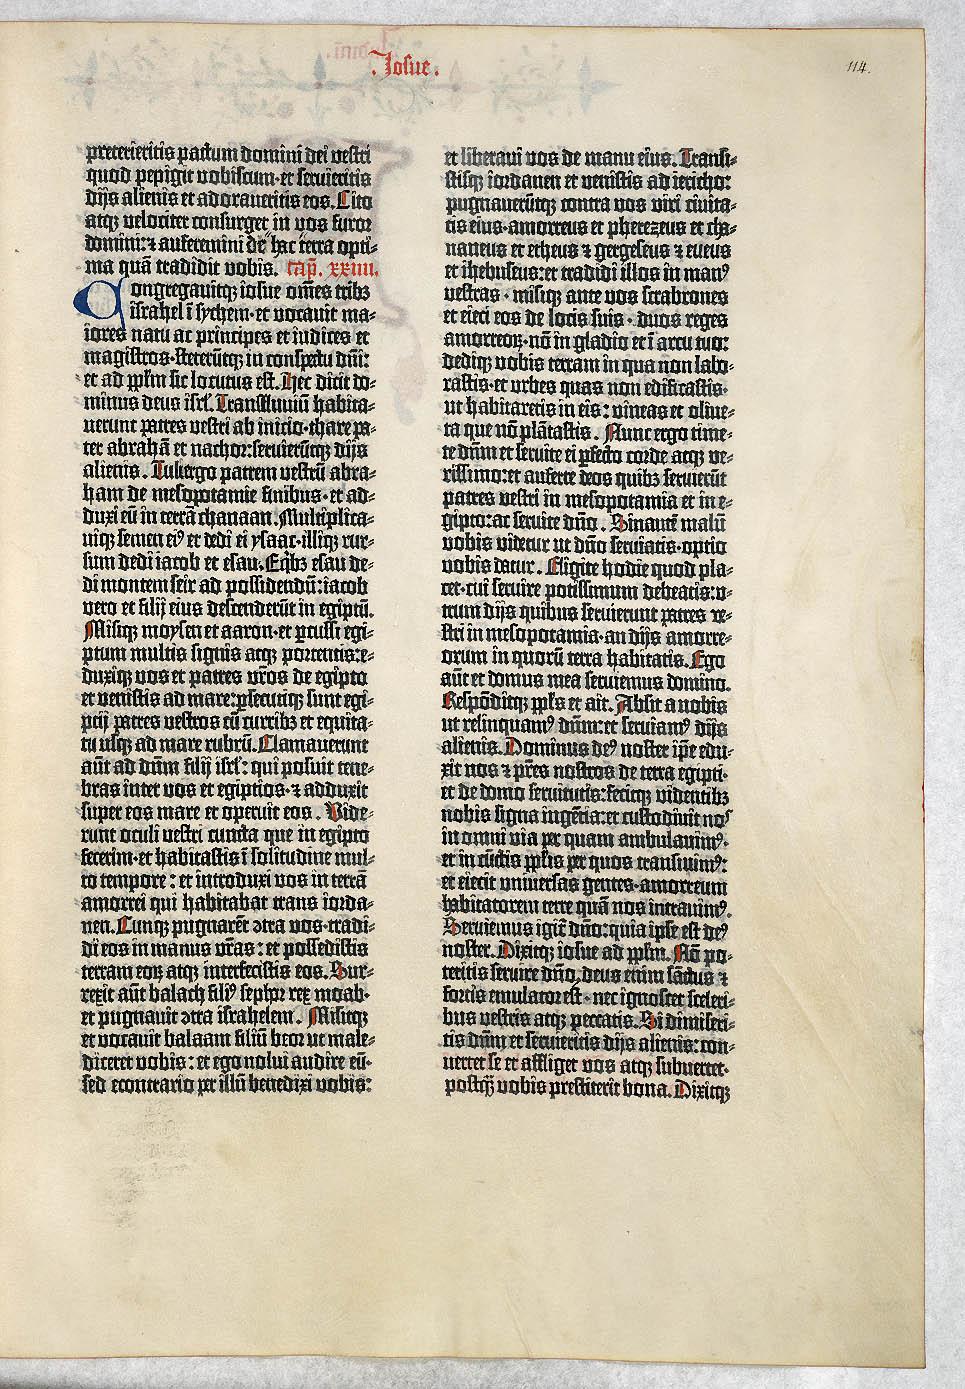 . Iosue .
114.
preterieritis pactum domini dei vestri
quod pepigit vobiscum·et servieritis
dijs alienis et adoraveritis eos. Cito
atqȝ velociter consurget in vos furor
domini:⁊ auferemini de hac terra opti-
ma quā tradidit vobis. cap̄. xxiiii.
Congregavitqȝ iosue om̄es tribȝ
israhel ī sychem·et vocavit ma-
iores natu ac principes et iudices et
magistros·steterūtqȝ in conspectu dn̄i:
et ad pp̄lm sic locutus est. Hec dicit do-
minus deus isrl̄. Transfluviū habita-
verunt patres vestri ab inicio·thare pa-
ter abrahā et nachor:servierūtqȝ dijs
alienis. Tuli ergo patrem vestrū abra-
ham de mesopotamie finibus·et ad-
duxi eū in terrā chanaan. Multiplica-
viqȝ semen eiꝰ et dedi ei ysaac·illiqȝ rur-
sum dedi iacob et esau. E quibȝ esau de-
di montem seir ad possidendū:iacob
vero et filij eius descenderūt in egiptū.
Misiqȝ moysen et aaron·et ꝑcussi egi-
ptum multis signis atqȝ portentis:e-
duxiqȝ vos et patres vr̄os de egipto
et venistis ad mare:ꝑsecutiqȝ sunt egi-
ptij patres vestros cū curribȝ et equita-
tu usqȝ ad mare rubrū. Clamaverunt
aūt ad dn̄m filij isrl̄: qui posuit tene-
bras inter vos et egiptios·⁊ adduxit
super eos mare et operuit eos . Vide-
runt oculi vestri cuncta que in egipto
fecerim·et habitastis ī solitudine mul-
to tempore : et introduxi vos in terrā
amorrei qui habitabat trans iorda-
nen. Cunqȝ pugnarēt ↄtra vos·tradi-
di eos in manus vr̄as: et possedistis
terram eoꝝ atqȝ interfecistis eos. Sur-
rexit aūt balach filiꝰ sephor rex moab·
et pugnavit ↄtra israhelem . Misitqȝ
et vocavit balaam filiū beor ut male-
diceret vobis: et ego nolui audire eū·
sed econtrario per illū benedixi vobis:
et liberavi vos de manu eius. Transi-
stisqȝ iordanen et venistis ad iericho:
pugnaverūtqȝ contra vos viri civita-
tis eius·amorreus et pherezeus et cha-
naneus et etheus ⁊ gergeseus ⁊ eveus
et ihebuseus:et tradidi illos in manꝰ
vestras . misiqȝ ante vos scrabrones
et eieci eos de locis suis · duos reges
amorreoꝝ·nō in gladio et ī arcu tuo:
dediqȝ vobis terram in qua non labo-
rastis·et urbes quas non edificastis·
ut habitaretis in eis: vineas et olive-
ta que nō plātastis. Nunc ergo time-
te dn̄m et servite ei ꝑfecto corde atqȝ ve-
rissimo:et auferte deos quibȝ servierūt
patres vestri in mesopotamia et in e-
gipto: ac servite dn̄o . Sin autē malū
vobis videtur ut dn̄o serviatis·optio
vobis datur. Eligite hodie quod pla-
cet·cui servire potissimum debeatis:u-
trum dijs quibus servierunt patres ve-
stri in mesopotamia·an dijs amorre-
orum in quorū terra habitatis. Ego
aūt et domus mea serviemus domino.
Respōditqȝ pp̄ls et ait. Absit a nobis
ut relinquamꝰ dn̄m:et serviamꝰ dijs
alienis. Dominus deꝰ noster ip̄e edu-
xit nos ⁊ pr̄es nostros de terra egipti·
et de domo servitutis:fecitqȝ videntibȝ
nobis signa ingētia:et custodivit nos
in omni via per quam ambulavimꝰ·
et in cūctis pp̄lis per quos transivimꝰ:
et eiecit universas gentes·amorreum
habitatorem terre quā nos intravimꝰ.
Serviemus igit̄ dn̄o:quia ipse est deꝰ
noster. Dixitqȝ iosue ad pp̄lm. Nō po-
teritis servire dn̄o. deus enim sāctus ⁊
fortis emulator est · nec ignoscet sceleri-
bus vestris atqȝ peccatis. Si dimiseri-
tis dn̄m et servieritis dijs alienis: con-
vertet se et affliget vos atqȝ subvertet·
postqȝ̄ vobis prestiterit bona. Dixitqȝ